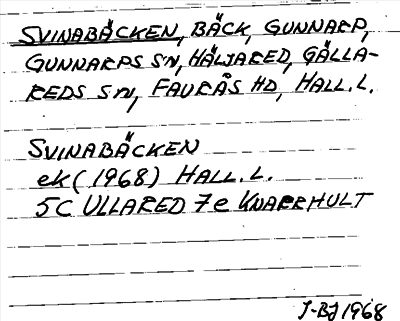 SVINABÄCKEN, BÄCK, GUNNARP,
GUNNARPS SN, HÄLJARED, GÄLLA-
REDS SN, FAURÅS HD, HALL. L.
SVINABÄCKEN
ek (1968) HALL. L.
5C ULLARED 7e KNARRHULT
J-BJ 1968